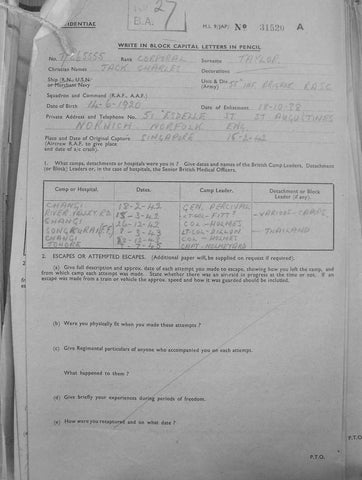 IDENTIAL
27
B.A.
M.I. 9/JAP/ No 31520 A
WRITE IN BLOCK CAPITAL LETTERS IN PENCIL
No. Rank CORPORAL Surname TAYLOR
Christian Names JACK CHARLES Decorations
Ship (R.N., U.S.N. or Merchant Navy Unit & Div (Army) RASC
Squadron and Command (R.A.F., A.A.F.)
Date of Birth 14-6-1920 Date of Enlistment 18-10-38
Private Address and Telephone No. 51 ESDELLE ST ST AUGUSTINES
NORWICH NORFOLK ENG
Place and Date of Original Capture SINGAPORE 15-2-42
(Aircrew R.A.F. to give place
and date of a/c crash).
1. What camps, detachments or hospitals were you in? Give dates and names of the British Camp Leaders, Detachment
(or Block) Leaders or, in the case of hospitals, the Senior British Medical Officers.
Camp or Hospital. Dates. Camp Leader. Detachment or Block Leader (if any).
CHANGI 18-2-42 GEN. PERCIVAL
RIVER VALLEY RD -3-42 - VARIOUS - CAMPS
CHANGI -12-42 COL - HOLMES
-3-43 LT-COL-DILLON - THAILAND
CHANGI -12-43 COL - HOLMES
JOHORE -45 CAPT
2. ESCAPES OR ATTEMPTED ESCAPES. (Additional paper will be supplied on request if required).
(a) Give full description and approx. date of each attempt you made to escape, showing how you left the camp, and
from which camp each attempt was made. State whether there was an air-raid in progress at the time or not. If an
escape was made from a train or vehicle the approx. speed and how it was guarded should be included.
(b) Were you physically fit when you made these attempts?
(c) Give Regimental particulars of anyone who accompanied you on each attempt.
What happened to them?
(d) Give briefly your experiences during periods of freedom.
(e) How were you recaptured and on what date?
P.T.O.
P.T.O.